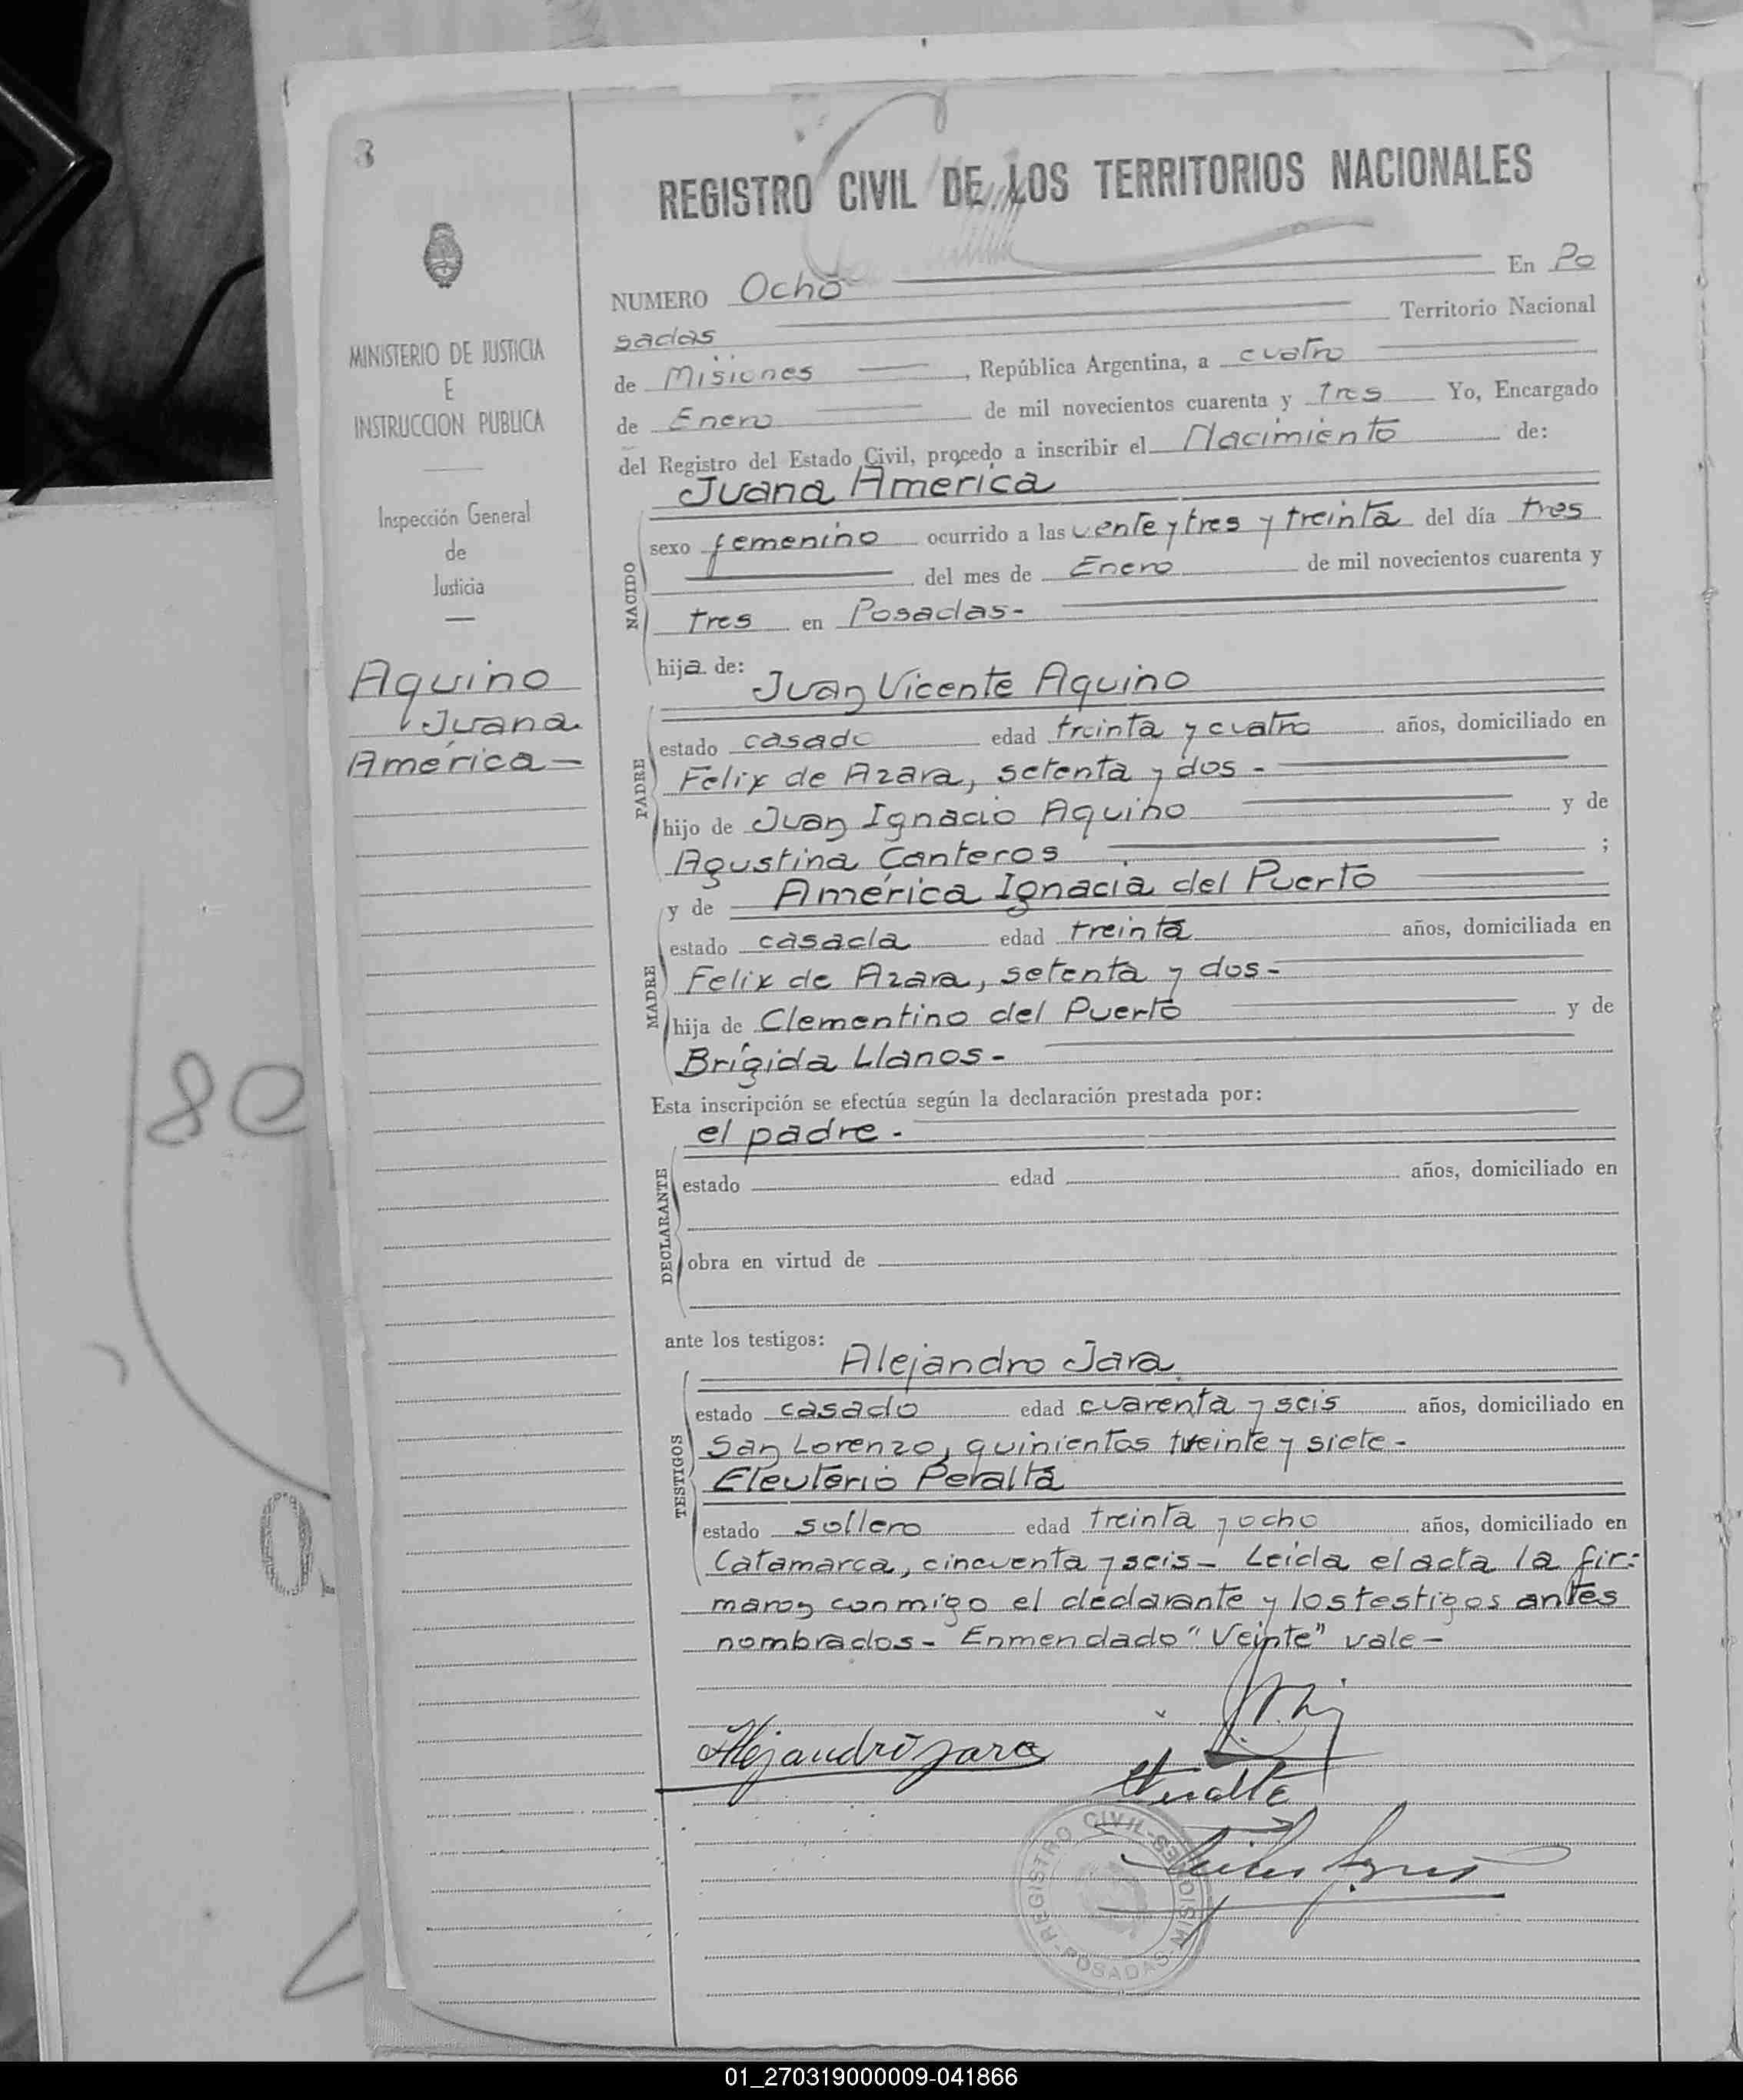 3
REGISTRO CIVIL DE LOS TERRITORIOS NACIONALES
MINISTERIO DE JUSTICIA
E
INSTRUCCION PUBLICA
Inspección General
de
Justicia
Aquino
Juana
América-
NUMERO Ocho En Po
sadas Territorio Nacional
de Misiones, República Argentina, a cuatro
de Enero de mil novecientos cuarenta y tres Yo, Encargado
del Registro del Estado Civil, procedo a inscribir el Nacimiento de:
Juana America
NACIDO
sexo femenino ocurrido a las vente y tres y treinta del día tres
del mes de Enero de mil novecientos cuarenta y
tres en Posadas-
hija de:
Juan Vicente Aquino
PADRE
estado casado edad treinta y cuatro años, domiciliado en
Felix de Azara, setenta y dos-
hijo de Juan Ignacio Aquino y de
Agustina Canteros ;
y de América Ignacia del Puerto
MADRE
estado casada edad treinta años, domiciliada en
Felix de Azara, setenta y dos-
hija de Clementino del Puerto y de
Brígida Llanos-
Esta inscripción se efectúa según la declaración prestada por:
el padre.
DECLARANTE
estado edad años, domiciliado en
obra en virtud de
ante los testigos:
Alejandro Jara
TESTIGOS
estado casado edad cuarenta y seis años, domiciliado en
San Lorenzo, quinientos veinte y siete-
Eleuterio Peralta
estado soltero edad treinta y ocho años, domiciliado en
Catamarca, cincuenta y seis- Leída el acta la fir=
maron conmigo el declarante y los testigos antes
nombrados- Enmendado "Veinte" vale-
Alejandro Jara
REGISTRO CIVIL-POSADAS-MISIONES
80
01_270319000009-041866